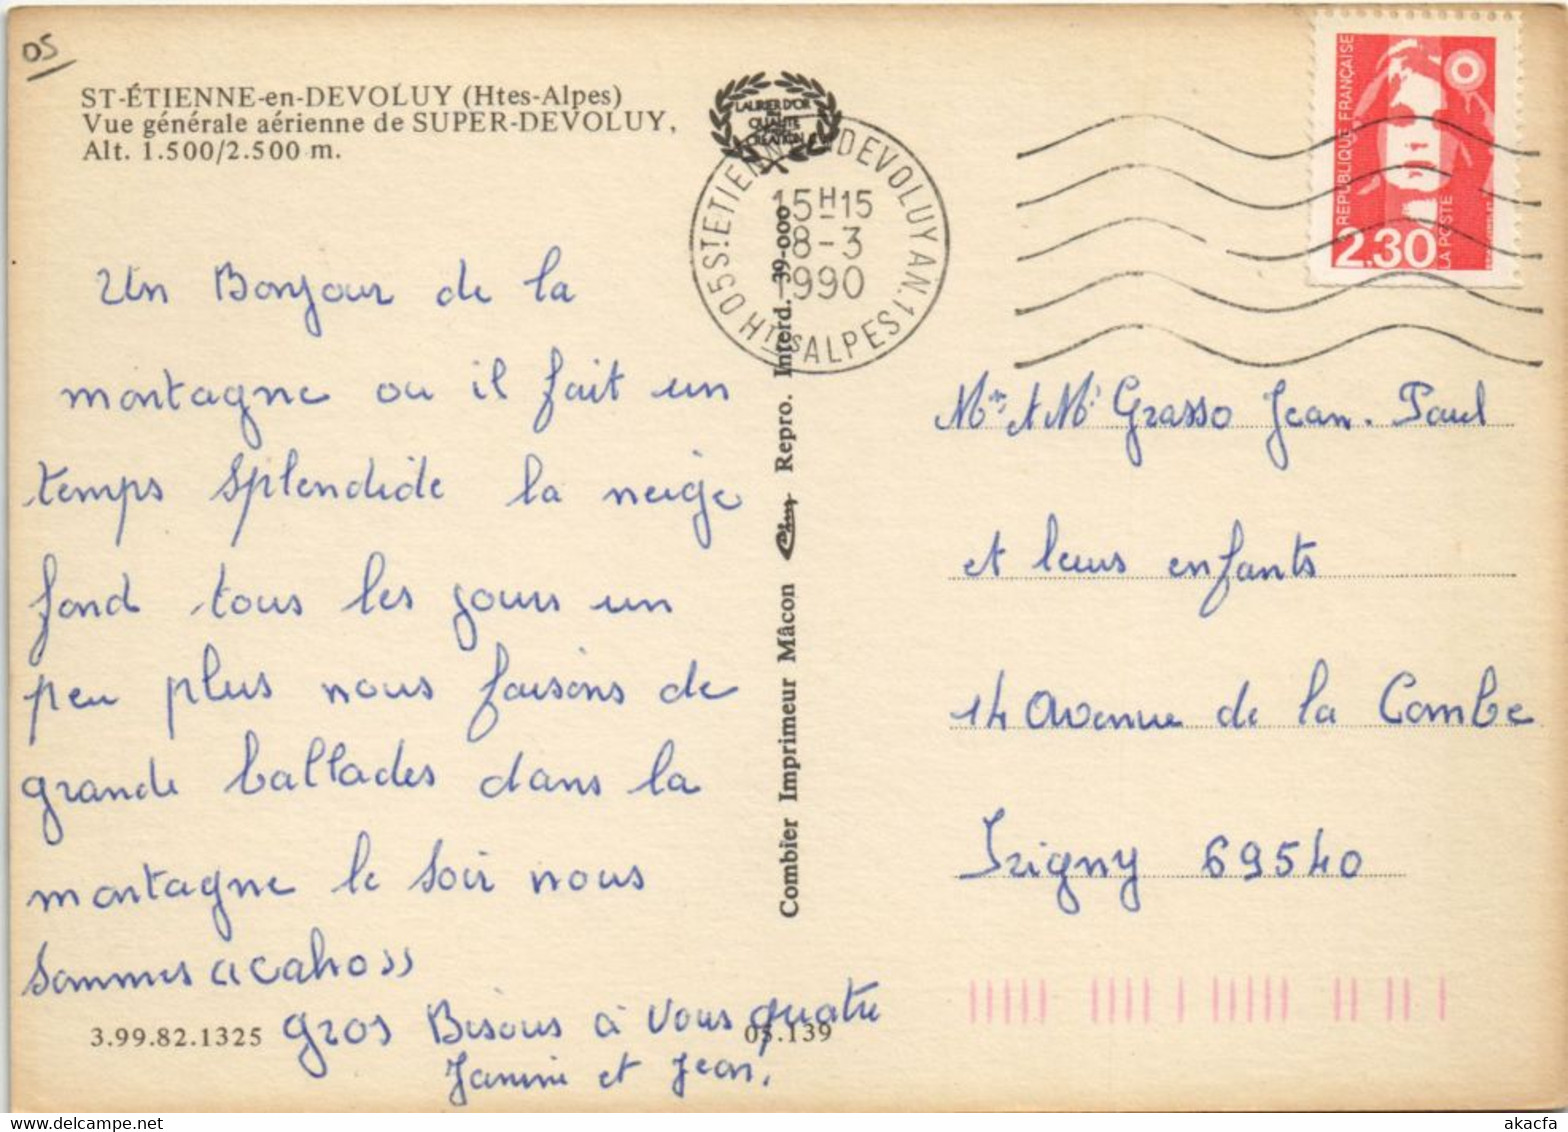 05
ST-ÉTIENNE-en-DEVOLUY (Htes-Alpes)
Vue générale aérienne de SUPER-DEVOLUY,
Alt. 1.500/2.500 m.
LAURIER D'OR
QUALITE
CREATION
05 ST ETIENNE EN DEVOLUY AN.1
15H15
8-3
1990
HTES ALPES
REPUBLIQUE FRANÇAISE
LA POSTE
2.30
Un Bonjour de la
montagne ou il fait un
temps splendide la neige
fond tous les jours un
peu plus nous faisons de
grande ballades dans la
montagne le soir nous
sommes "cahos"
gros Bisous à vous quatre
Janine et Jean.
3.99.82.1325
05.139
Combier Imprimeur Mâcon Cim Repro. Interd. 39-000
Mme et Mr Grasso Jean-Paul
et leurs enfants
14 Avenue de la Combe
Irigny 69540
akacfa